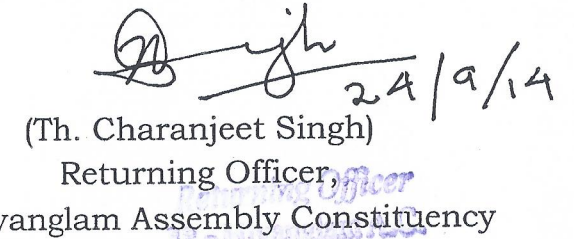 24/9/14
(Th. Charanjeet Singh)
Returning Officer,
Returning Officer
vanglam Assembly Constituency